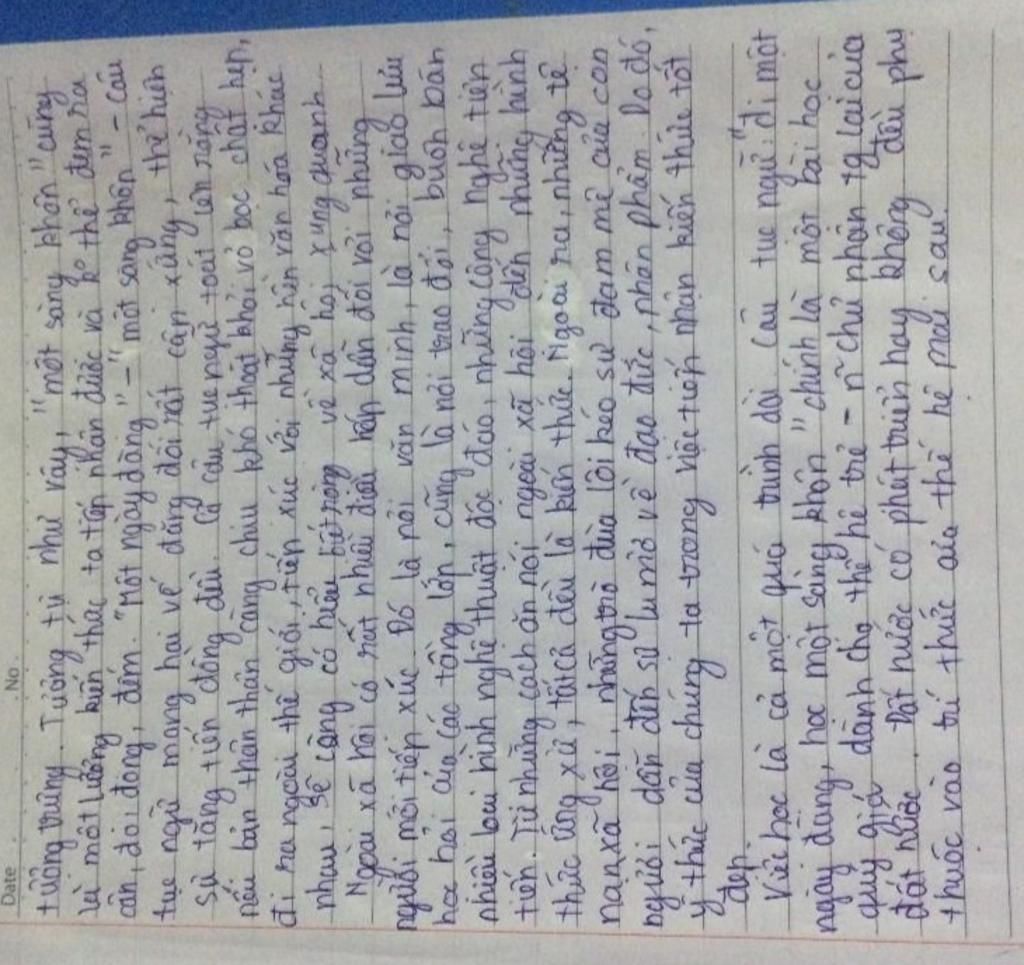 Date . No .
tượng trưng. Tương tự như vậy, "một sàng khôn" cũng
là một lượng kiến thức ta tiếp nhận được và k° thể đem ra
cân, đo, đong, đếm. "Một ngày đàng" - "một sàng khôn" - câu
tục ngữ mang hai vế đăng đối rất cân xứng, thể hiện
sự tăng tiến đồng đều. Cả câu tục ngữ toát lên rằng
nếu bản thân thân càng chịu khó thoát khỏi vỏ bọc chật hẹp,
đi ra ngoài thế giới, tiếp xúc với những nền văn hóa khác
nhau, sẽ càng có hiểu biết rộng về xã hội xung quanh.
Ngoài xã hội có rất nhiều điều hấp dẫn đối với những
người mới tiếp xúc. Đó là nơi văn minh, là nơi giao lưu
học hỏi của các tầng lớp, cũng là nơi trao đổi, buôn bán
nhiều loại hình nghệ thuật độc đáo, những công nghệ tiên
tiến. Từ những cách ăn nói ngoài xã hội đến những hành
thức ứng xử, tất cả đều là kiến thức. Ngoài ra, những tệ
nạn xã hội, những trò đùa lôi kéo sự đam mê của con
người dẫn đến sự lu mờ về đạo đức, nhân phẩm. Do đó,
ý thức của chúng ta trong việc tiếp nhận kiến thức tốt
đẹp.
Việc học là cả một quá trình dài. Câu tục ngữ: "đi một
ngày đàng, học một sàng khôn" chính là một bài học
quý giá dành cho thế hệ trẻ - n~ chủ nhân tg lai của
đất nước. Đất nước có phát triển hay không đều phụ
thuộc vào tri thức của thế hệ mai sau.